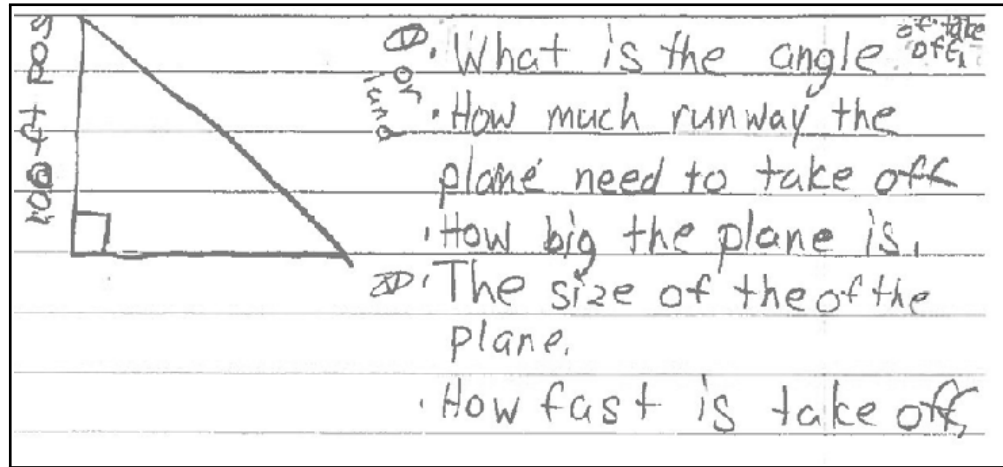 100 ft pog
What is the angle of take off.
or land
How much runway the
plane need to take off
How big the plane is.
The size of the of the
plane.
How fast is take off,